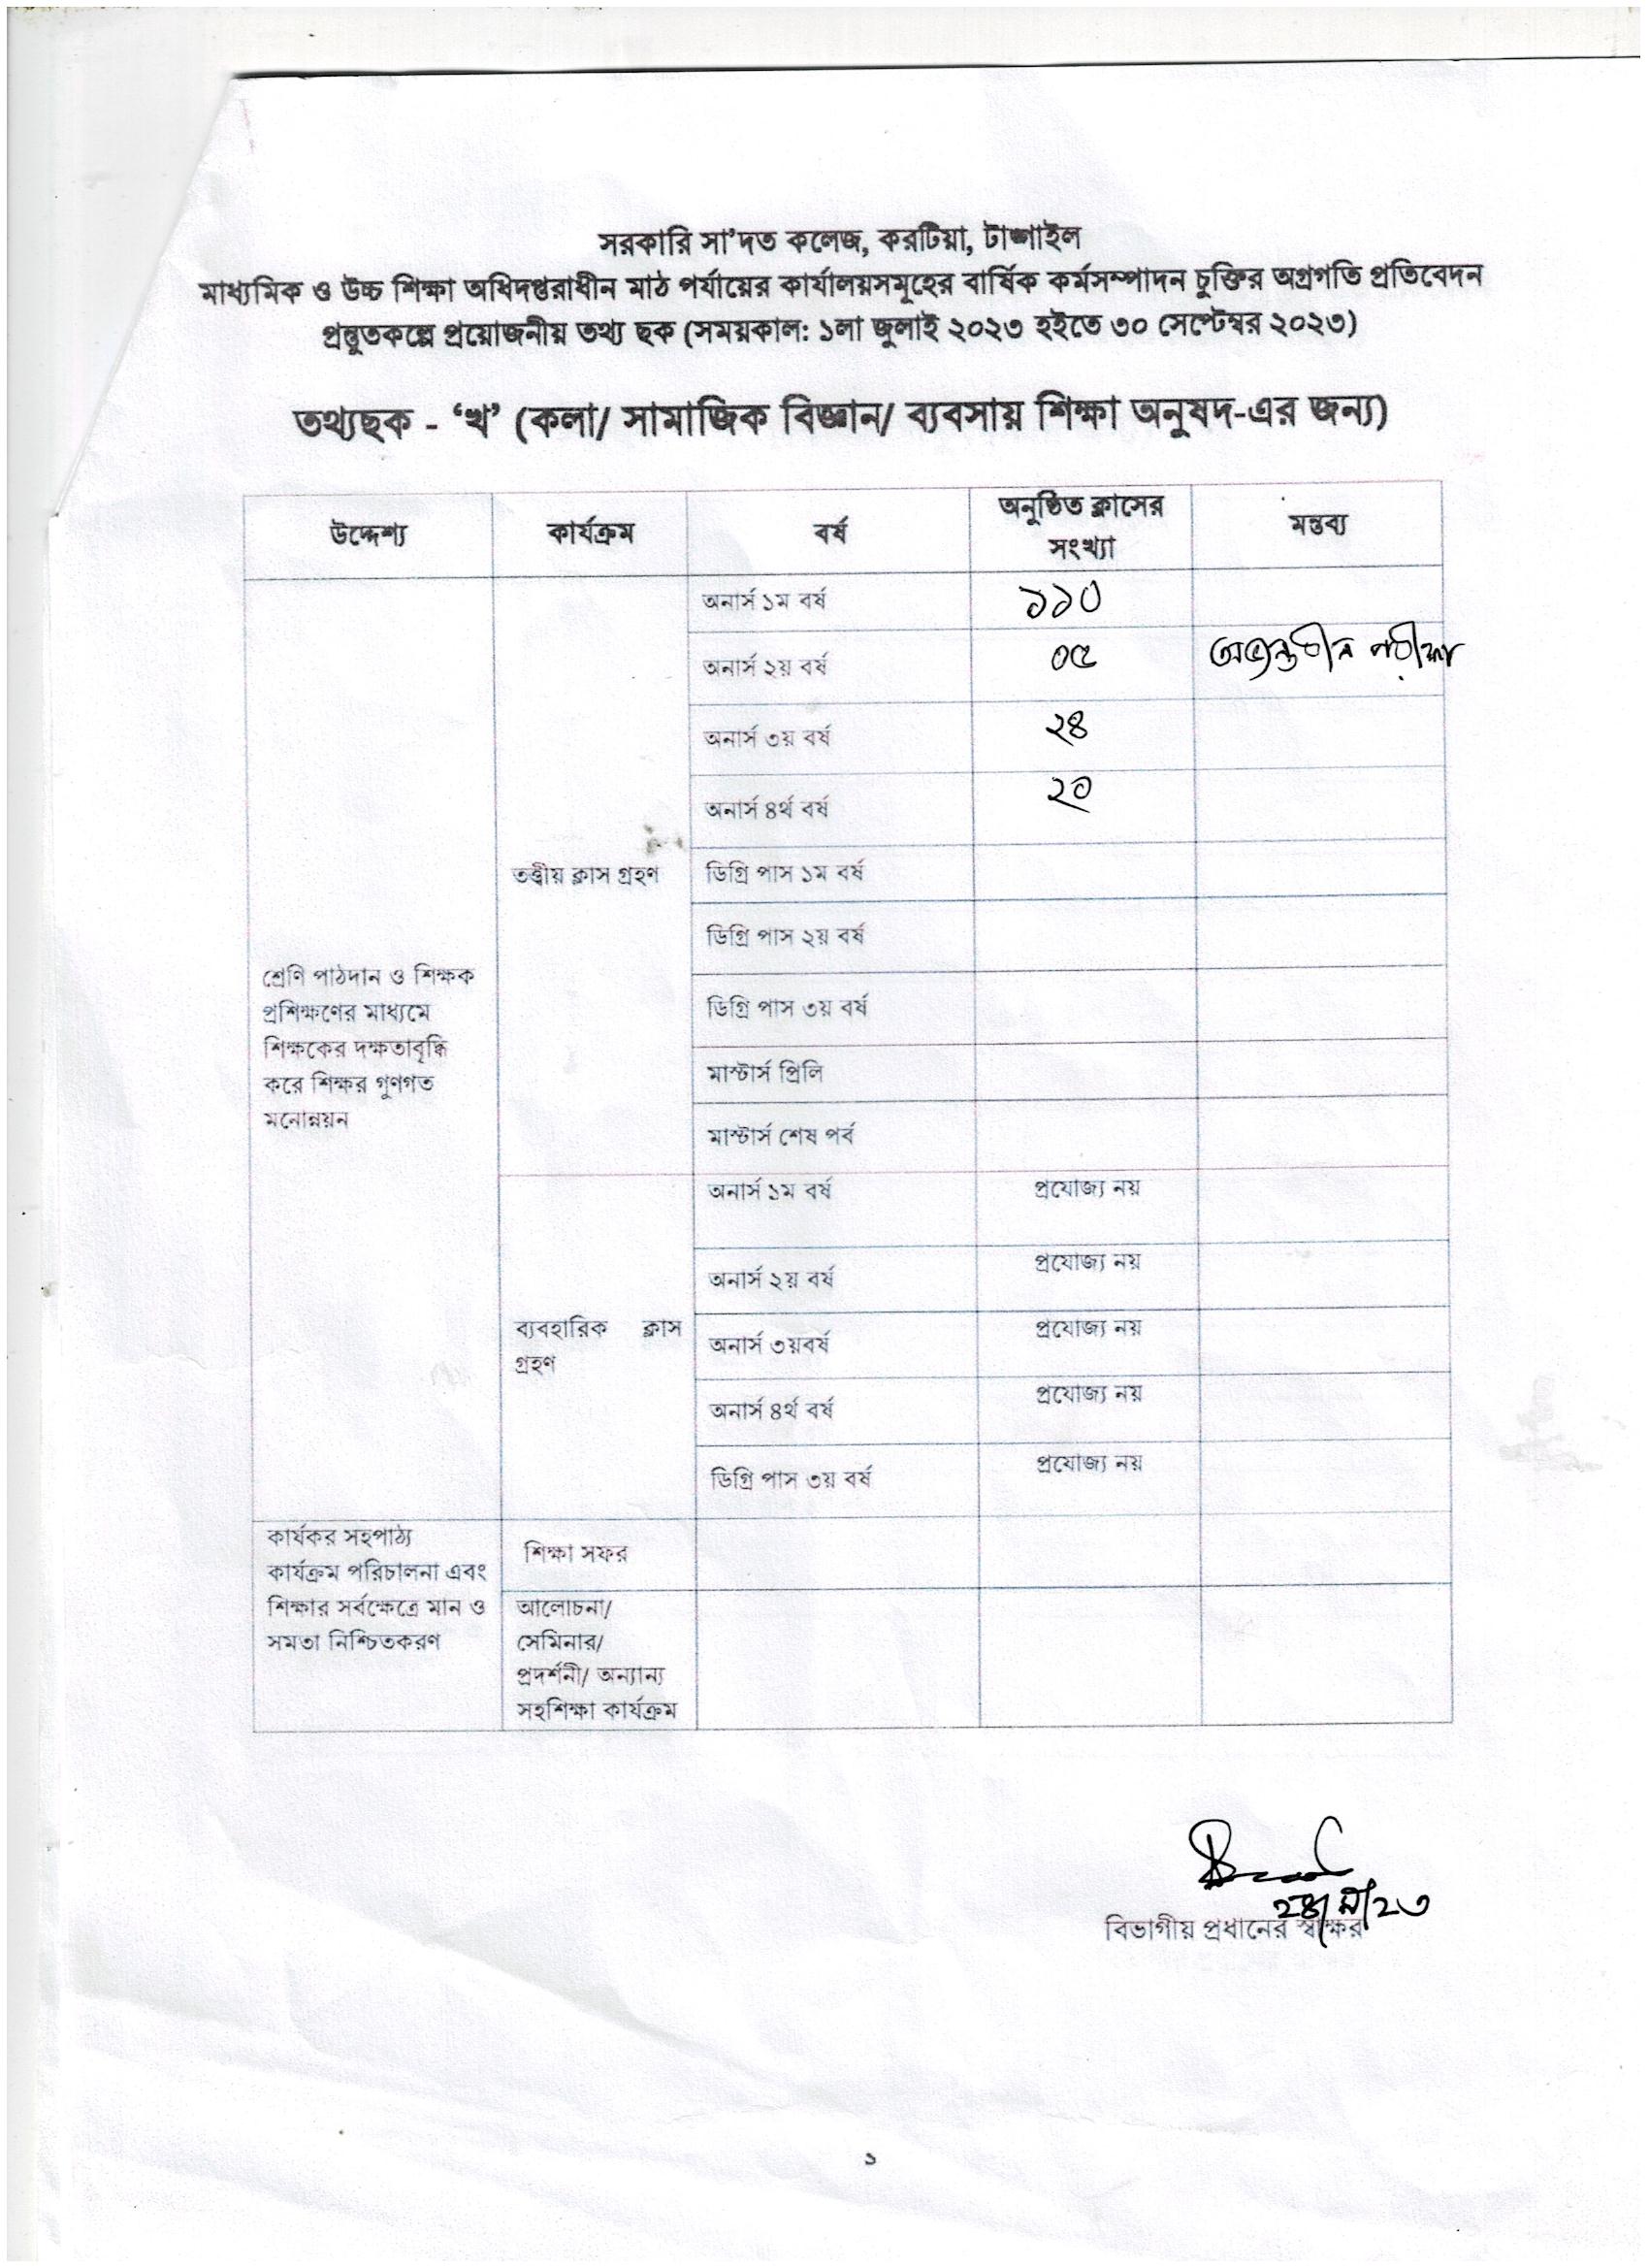 সরকারি সা'দত কলেজ, করটিয়া, টাঙ্গাইল
মাধ্যমিক ও উচ্চ শিক্ষা অধিদপ্তরাধীন মাঠ পর্যায়ের কার্যালয়সমূহের বার্ষিক কর্মসম্পাদন চুক্তির অগ্রগতি প্রতিবেদন
প্রস্তুতকল্পে প্রয়োজনীয় তথ্য ছক (সময়কাল: ১লা জুলাই ২০২৩ হইতে ৩০ সেপ্টেম্বর ২০২৩)
তথ্যছক - ‘খ’ (কলা/ সামাজিক বিজ্ঞান/ ব্যবসায় শিক্ষা অনুষদ-এর জন্য)
উদ্দেশ্য কার্যক্রম বর্ষ অনুষ্ঠিত ক্লাসের
সংখ্যা মন্তব্য
শ্রেণি পাঠদান ও শিক্ষক
প্রশিক্ষণের মাধ্যমে
শিক্ষকের দক্ষতাবৃদ্ধি
করে শিক্ষর গুণগত
মনোন্নয়ন
তত্ত্বীয় ক্লাস গ্রহণ
অনার্স ১ম বর্ষ ১১০
অনার্স ২য় বর্ষ ০৫ অভ্যন্তরীন পরীক্ষা
অনার্স ৩য় বর্ষ ২৪
অনার্স ৪র্থ বর্ষ ২০
ডিগ্রি পাস ১ম বর্ষ
ডিগ্রি পাস ২য় বর্ষ
ডিগ্রি পাস ৩য় বর্ষ
মাস্টার্স প্রিলি
মাস্টার্স শেষ পর্ব
ব্যবহারিক ক্লাস
গ্রহণ
অনার্স ১ম বর্ষ প্রযোজ্য নয়
অনার্স ২য় বর্ষ প্রযোজ্য নয়
অনার্স ৩য়বর্ষ প্রযোজ্য নয়
অনার্স ৪র্থ বর্ষ প্রযোজ্য নয়
ডিগ্রি পাস ৩য় বর্ষ প্রযোজ্য নয়
কার্যকর সহপাঠ্য
কার্যক্রম পরিচালনা এবং
শিক্ষার সর্বক্ষেত্রে মান ও
সমতা নিশ্চিতকরণ
শিক্ষা সফর
আলোচনা/
সেমিনার/
প্রদর্শনী/ অন্যান্য
সহশিক্ষা কার্যক্রম
বিভাগীয় প্রধানের স্বাক্ষর
১